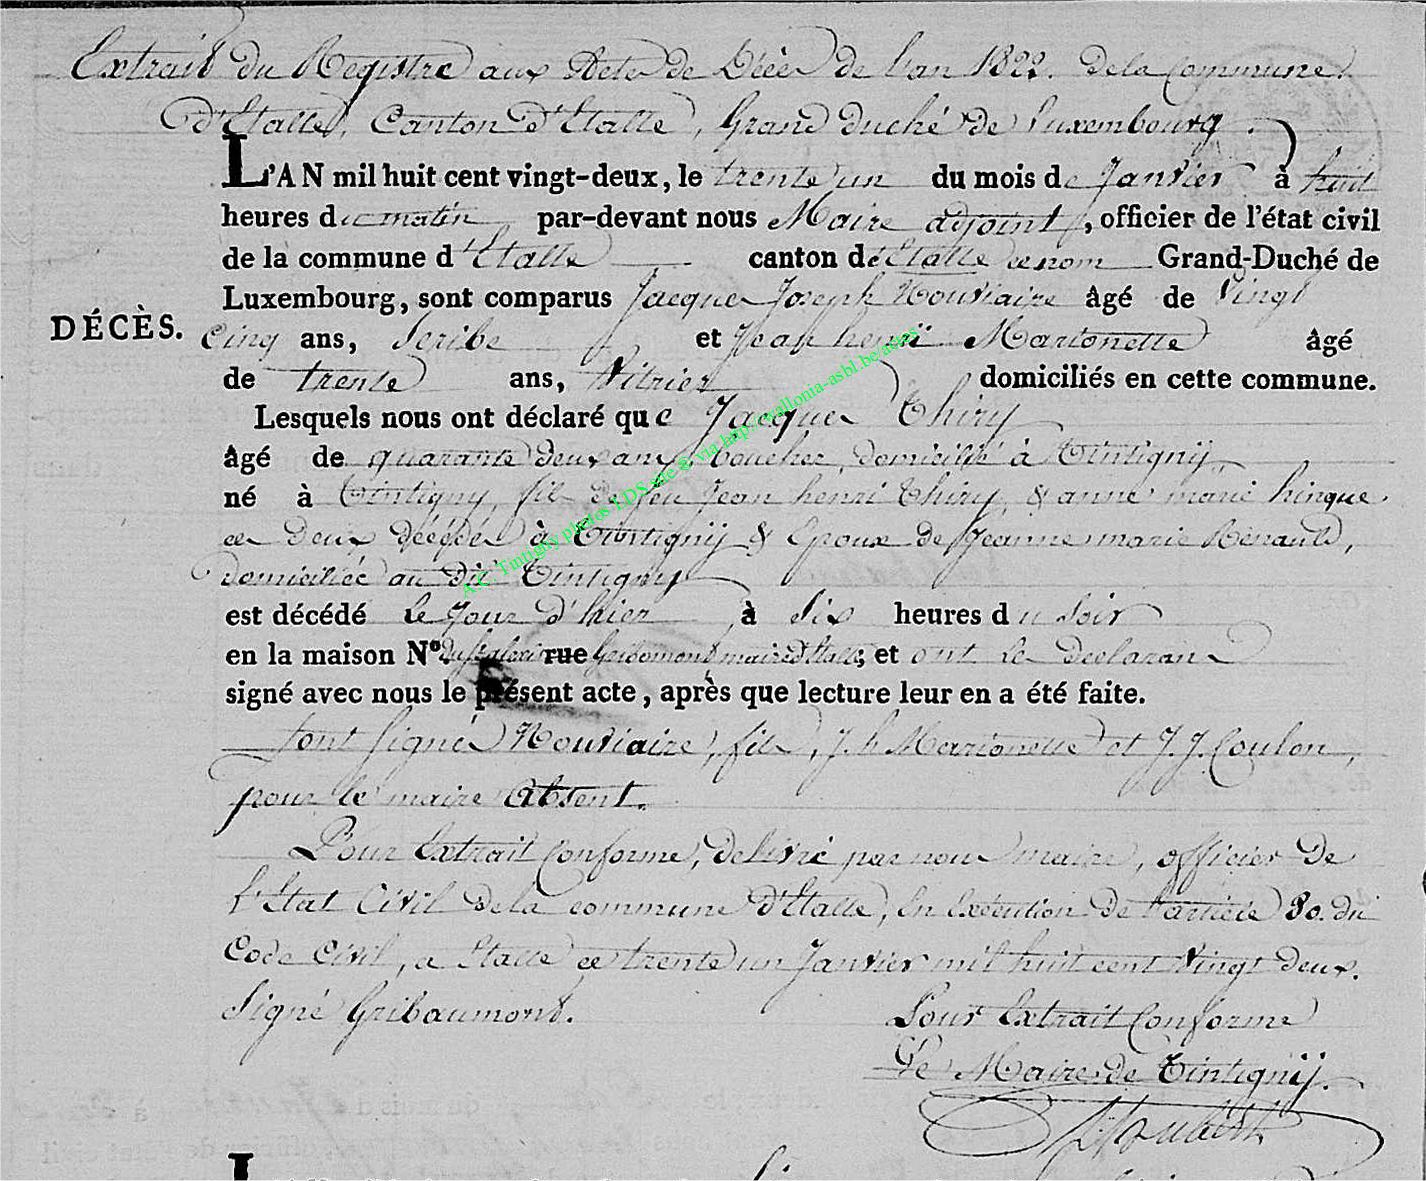 Extrait du Registre aux Actes de Décès de l'an 1822. de la Commune
d'Etalle, Canton d'Etalle, Grand duché de Luxembourg.
L'AN mil huit cent vingt-deux, le trente un du mois de Janvier à huit
heures du matin par-devant nous Maire adjoint, officier de l'état civil
de la commune d'Etalle canton de Etalle ce nom Grand-Duché de
Luxembourg, sont comparus Jacques Joseph Nouviaire âgé de vingt
DÉCÈS.
cinq ans, Scribe et Jean henri Marionette âgé
de trente ans, Vitrier domiciliés en cette commune.
Lesquels nous ont déclaré que Jacques Thiry
âgé de quarante deux ans, boucher, domicilié à Tintigny,
né à Tintigny, fils de feu Jean henri Thiry, & anne marie hinque
ces deux décédés à Tintigny & Epoux de Jeanne marie Renauld,
domiciliée au dit Tintigny
est décédé le Jour d'hier à Six heures du Soir
en la maison N° rue Gribomont maire d'Etalle, et ont les declarans
signé avec nous le présent acte, après que lecture leur en a été faite.
sont signés Nouviaire, fils, J. h Marionette et J. J. Coulon,
pour le maire absent.
Pour Extrait Conforme, delivré par nous maire, officier de
l'Etat Civil de la commune d'Etalle, En Exécution de l'article 80. du
Code Civil, a Etalle ce trente un Janvier mil huit cent vingt deux.
Signé Gribaumont.
Pour Extrait Conforme
Le Maire de Tintigny.
A.C. Tintigny photos LDS site @ via http://wallonia-asbl.be/actes